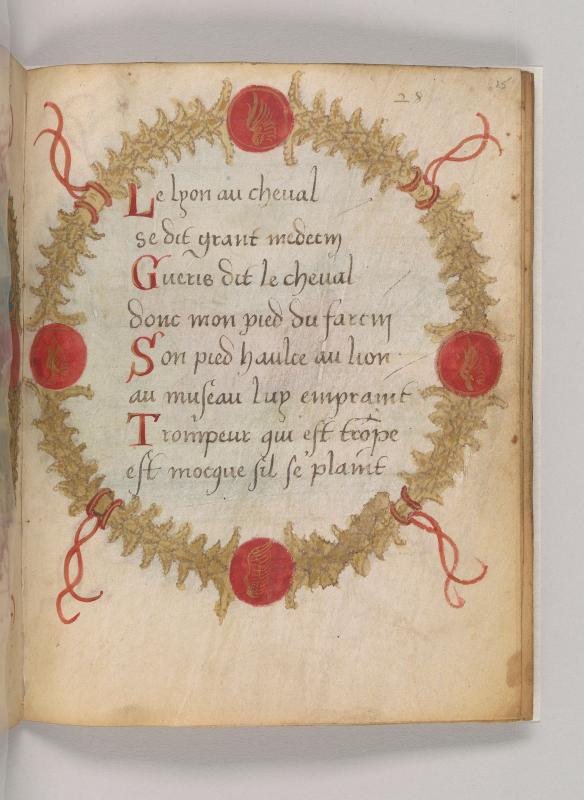 28
15
Le lyon au cheval
se dit grant medecin
Gueris dit le cheval
donc mon pied du farcin
Son pied haulce au lion
au museau luy empraint
Trompeur qui est trōpe
est mocque sil se plaint